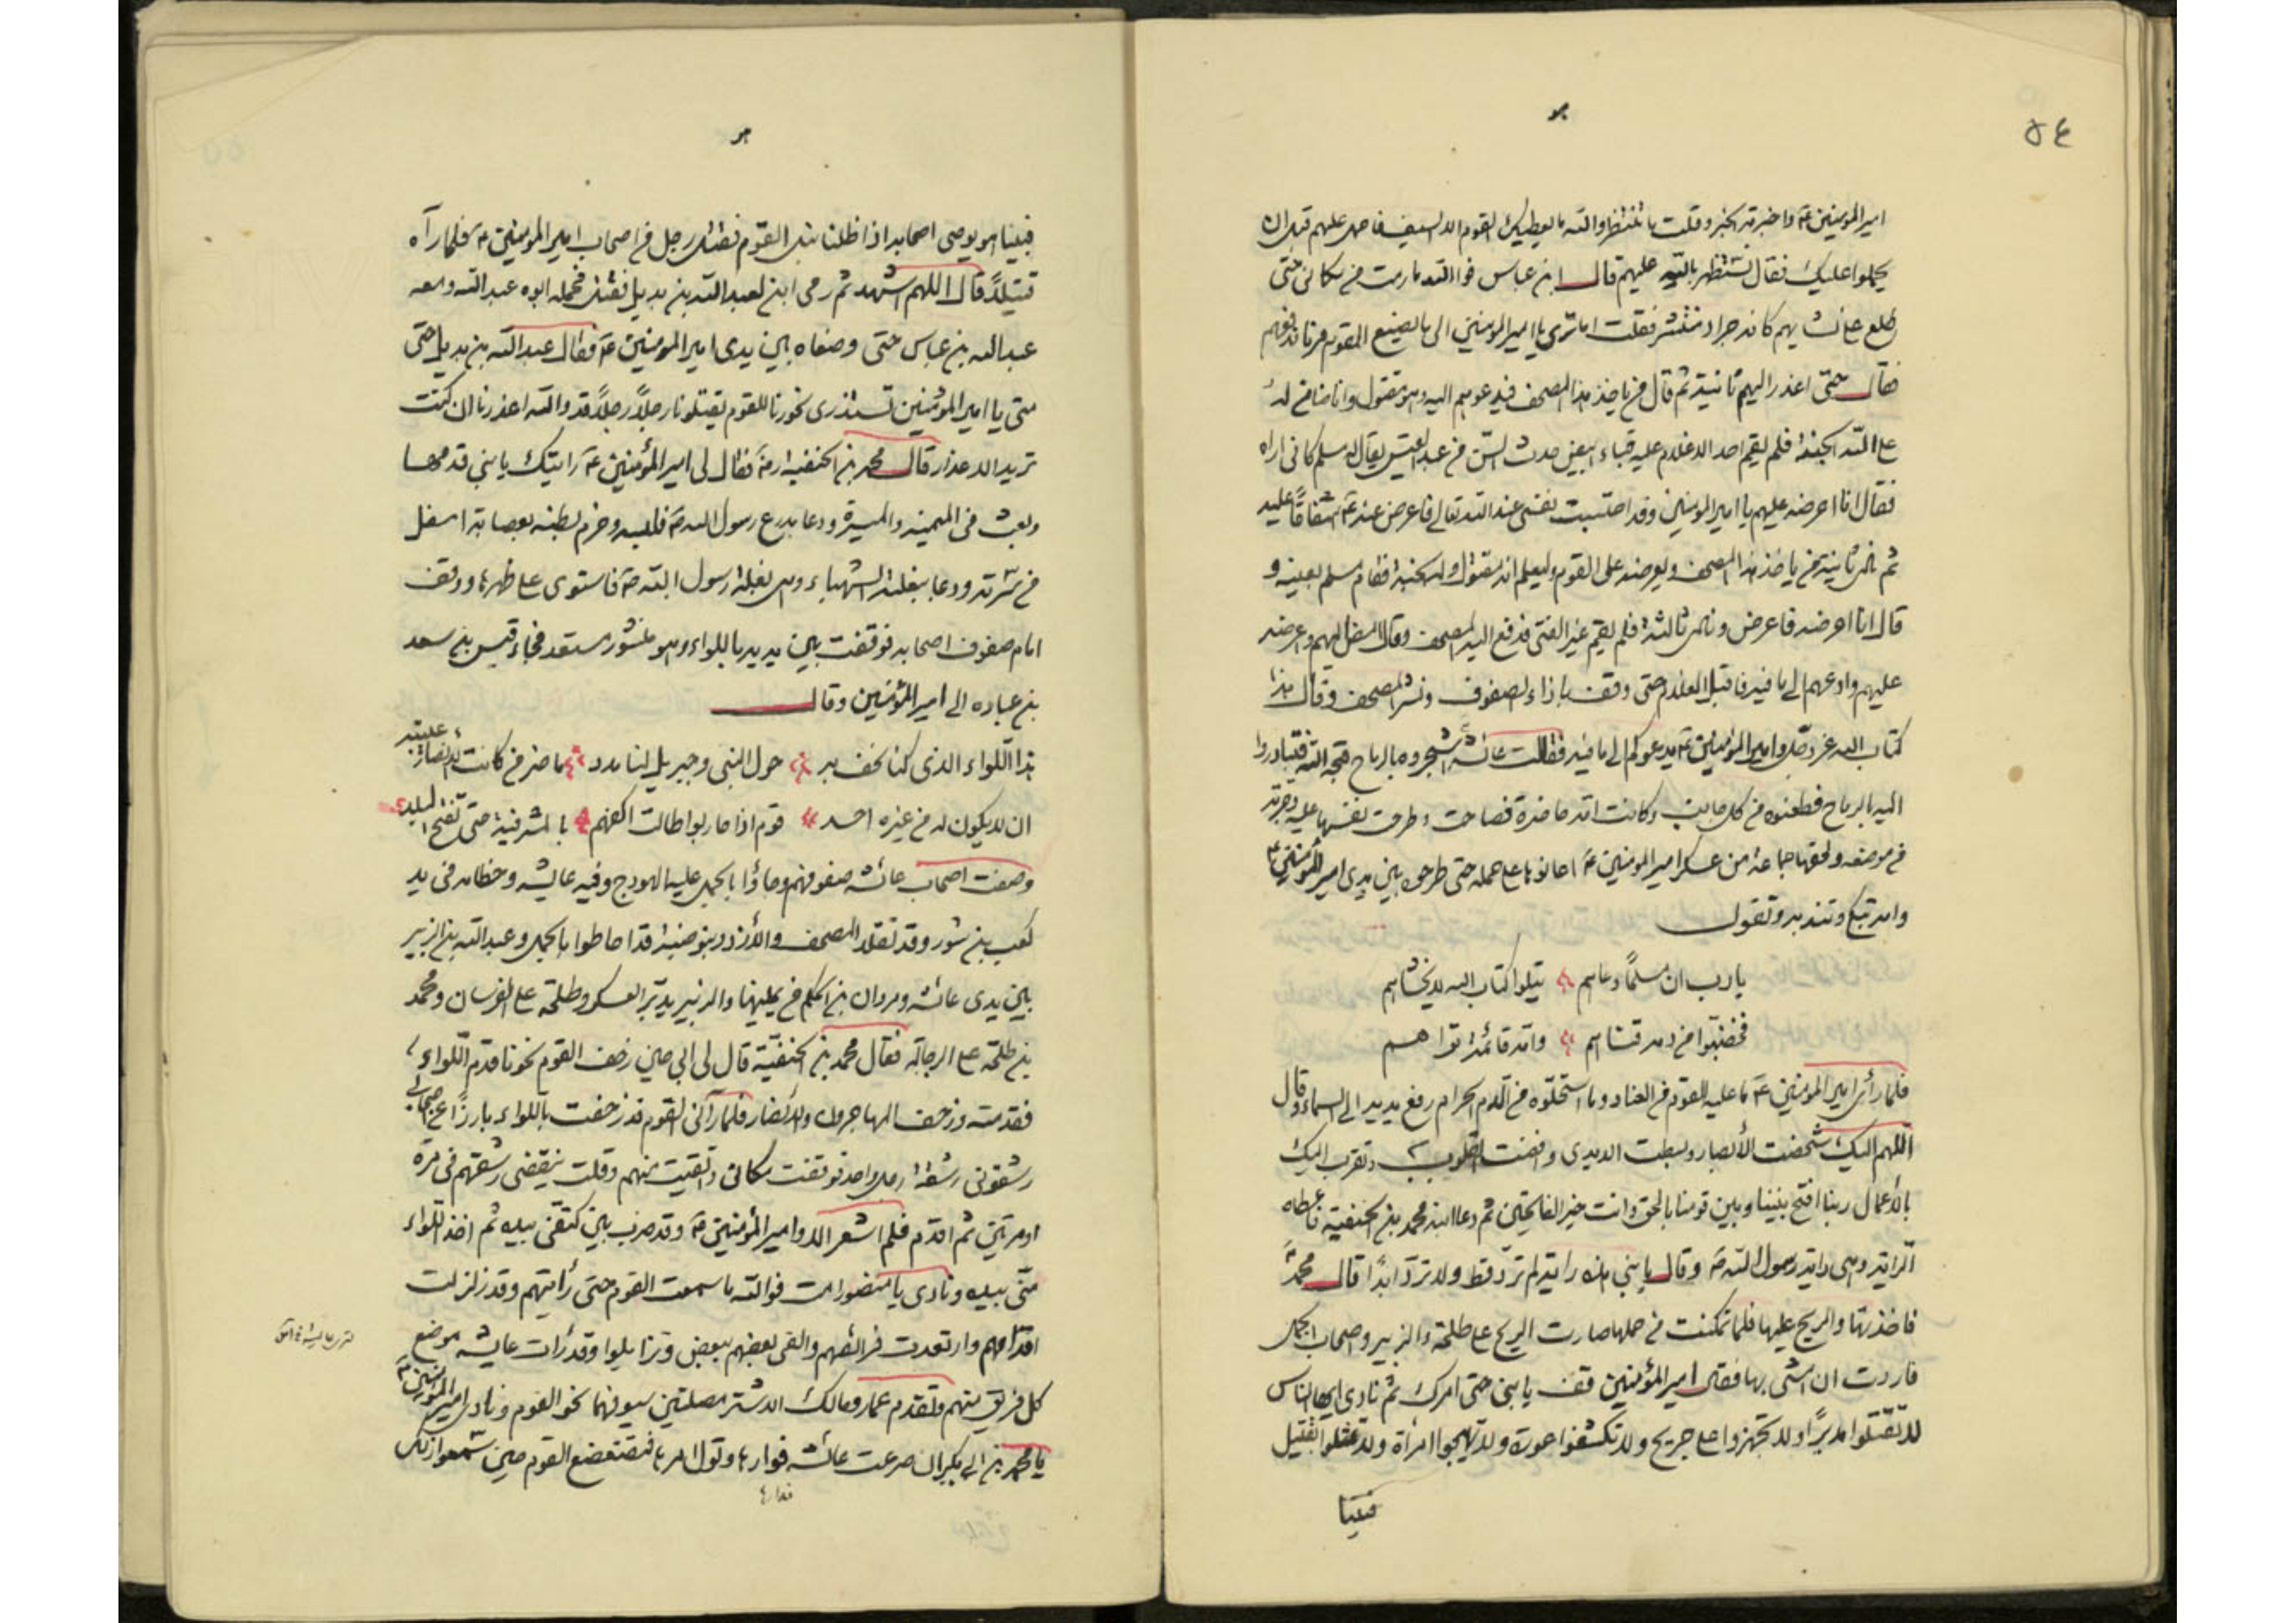 هو
٥٤
امير المؤمنين ع واخبرته الخبر وقلت ما تنتظر والله ما يعطيك القوم الا السيف فاحمل عليهم قبل ان
يحملوا عليك فقال نستظهر بالله عليهم قال ابن عباس فوالله ما رمت من مكاني حتى
طلع على نشابهم كانه جراد منتشر فقلت اما ترى يا امير المؤمنين الى ما يصنع القوم مرنا ندفعهم
فقال حتى اعذر اليهم ثانية ثم قال من ياخذ هذا المصحف فيدعوهم اليه وهو مقتول وانا ضامن له
على الله الجنة فلم يقم احد الا غلام عليه قباء ابيض حدث السن من عبد القيس يقال له مسلم كاني اراه
فقال انا اعرضه عليهم يا امير المؤمنين وقد احتسبت نفسي عند الله تعالى فاعرض عنه ع اشفاقًا عليه
ثم نادى ثانية من ياخذ هذا المصحف ويعرضه على القوم وليعلم انه مقتول وله الجنة فقام مسلم بعينه و
قال انا اعرضه فاعرض ونادى ثالثة فلم يقم غير الفتى فدفع اليه المصحف وقال امض اليهم واعرضه
عليهم وادعهم الى ما فيه فاقبل الغلام حتى وقف بازاء الصفوف ونشر المصحف وقال هذا
كتاب الله عز وجل وامير المؤمنين ع يدعوكم الى ما فيه فقالت عائشة اشجروه بالرماح قبحه الله فتبادروا
اليه بالرماح فطعنوه من كل جانب وكانت امه حاضرة فصاحت وطرحت نفسها عليه وجرته
من موضعه ولحقها جماعة من عسكر امير المؤمنين ع اعانوها على حمله حتى طرحوه بين يدي امير المؤمنين ع
وامه تبكي وتندبه وتقول
يا رب ان مسلمًا دعاهم يتلوا كتاب الله لا يخشاهم
فخضبوا من دمه قناهم وامه قائمة تراهم
فلما رأى امير المؤمنين ع ما عليه القوم من العناد وما استحلوه من الدم الحرام رفع يديه الى السماء وقال
اللهم اليك شخصت الأبصار وبسطت الايدي وافضت القلوب وتقرب اليك
بالأعمال ربنا افتح بيننا وبين قومنا بالحق وانت خير الفاتحين ثم دعا ابنه محمد بن الحنفية فاعطاه
الراية وهي راية رسول الله ص وقال يا بني هذه راية لم ترد قط ولا ترد ابدًا قال محمد
فاخذتها والريح عليها فلما تمكنت من حملها صارت الريح على طلحة والزبير واصحاب الجمل
فاردت ان امشي بها فقال امير المؤمنين قف يا بني حتى امرك ثم نادى ايها الناس
لا تقتلوا مدبرًا ولا تجهزوا على جريح ولا تكشفوا عورة ولا تهيجوا امرأة ولا تمثلوا بقتيل
فبينا
هو
فبينا هو يوصي اصحابه اذ اظلنا نبل القوم فقتل رجل من اصحاب امير المؤمنين ع فلما رآه
قتيلاً قال اللهم اشهد ثم رمى ابن لعبد الله بن بديل فقتل فحمله ابوه عبد الله ومعه
عبد الله بن عباس حتى وضعاه بين يدي امير المؤمنين ع فقال عبد الله بن بديل حتى
متى يا امير المؤمنين نستذري نحورنا للقوم يقتلونا رجلاً رجلاً قد والله اعذرنا ان كنت
تريد الاعذار قال محمد بن الحنفية فقال لي امير المؤمنين ع رايتك يا بني قدمها
وبعث في الميمنة والميسرة ودعا بدرع رسول الله ص فلبسه وحزم بطنه بعصابة اسفل
من سرته ودعا ببغلته الشهباء وهي بغلة رسول الله ص فاستوى على ظهرها ووقف
امام صفوف اصحابه فوقفت بين يديه باللواء وهو منشور مستعد فجاء قيس بن سعد
بن عباده الى امير المؤمنين وقال
هذا اللواء الذي كنا نحف به حول النبي وجبريل لنا مدد ما ضر من كانت الانصار عيبته
ان لا يكون له من غيره احد قوم اذا حاربوا طالت اكفهم بالمشرفية حتى تفتح البلد
وصفت اصحاب عائشه صفوفهم وجاؤا بالجمل عليه الهودج وفيه عايشه وخطامه في يد
كعب بن سور وقد تقلد المصحف والأزد وبنو ضبة قد احاطوا بالجمل وعبد الله بن الزبير
بين يدي عائشه ومروان بن الحكم من يمينها والزبير يدبر العسكر وطلحة على الفرسان ومحمد
بن طلحة على الرجالة فقال محمد بن الحنفية قال لي ابي حين زحف القوم نحونا قدم اللواء
فقدمته وزحف المهاجرون والأنصار فلما رآني القوم قد زحفت باللواء بارزًا عن اصحابي
رشقوني رشقة رجل واحد فوقفت مكاني واتقيت منهم وقلت ينقضي رشقهم في مرة
او مرتين ثم اقدم فلم اشعر الا وامير المؤمنين ع وقد ضرب بين كتفي بيده ثم اخذ اللواء
مني بيده ونادى يا منصور امت فوالله ما سمعت القوم حتى رأيتهم وقد زلزلت
اقدامهم وارتعدت فرائصهم والقى بعضهم ببعض وتزايلوا وقد رأت عايشه موضع
كل فريق منهم وتقدم عمار ومالك الاشتر مصلتين سيوفهما نحو القوم ونادى امير المؤمنين ع
يا محمد بن ابي بكر ان صرعت عائشه فوارها وتول امرها فتضعضع القوم حين سمعوا ذلك